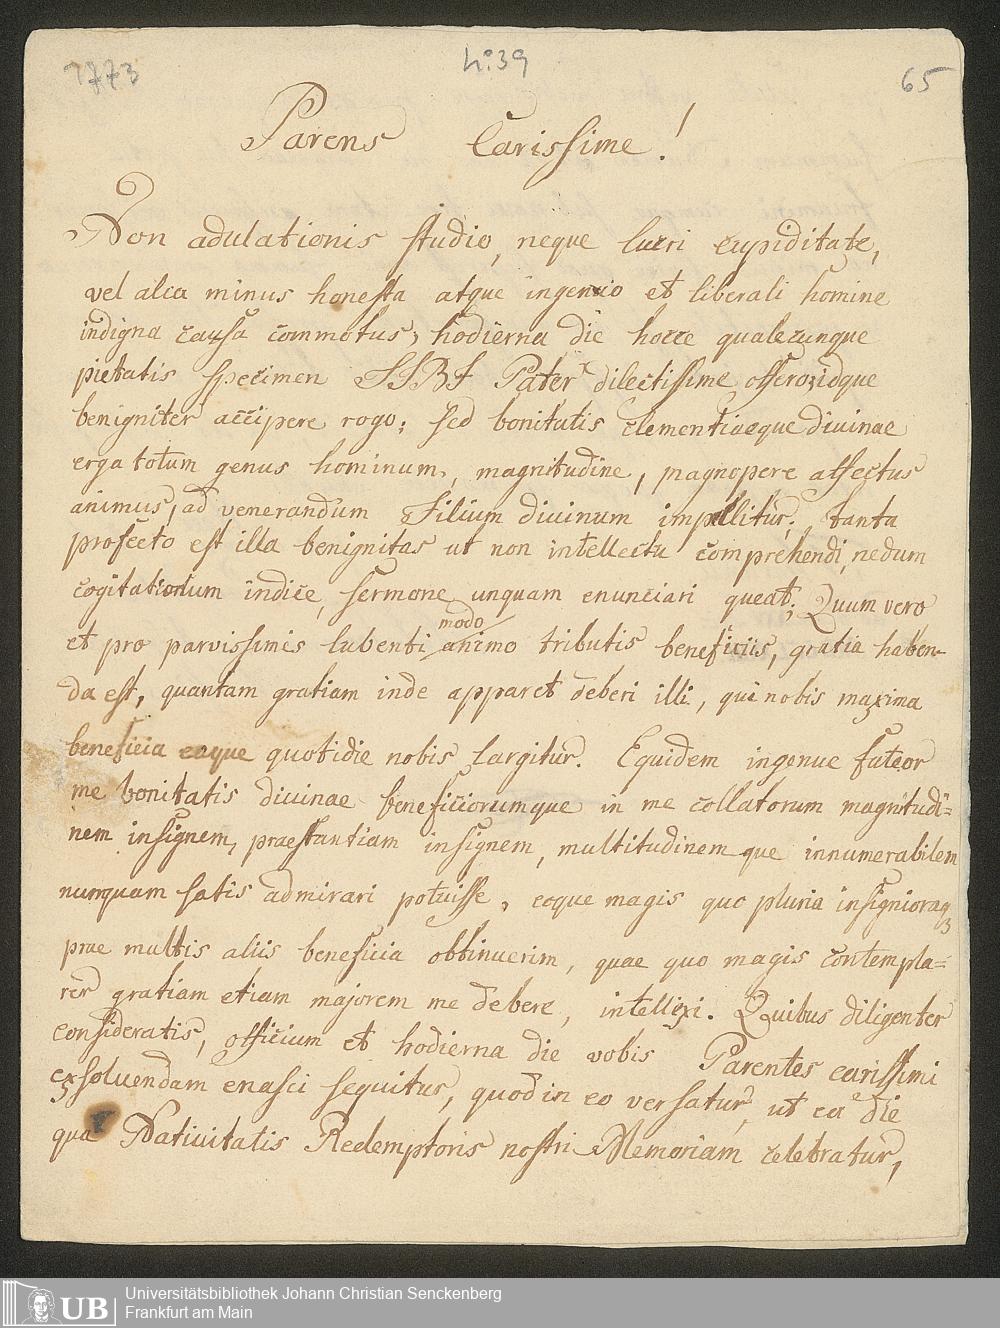 1773
h: 39
65
Parens Carissime!
Non adulationis studio, neque lucri cupiditate,
vel alea minus honesta atque ingenuo et liberali homine
indigna causa commotus, hodierna die hocce qualecunque
pietatis specimen TIBI Pater dilectissime offero, idque
benigniter accipere rogo; sed bonitatis clementiaeque divinae
erga totum genus hominum, magnitudine, magnopere affectus
animus, ad venerandum Filium divinum impellitur; tanta
profecto est illa benignitas ut non intellectu comprehendi, nedum
cogitationum indice, sermone unquam enunciari queat; Quum vero
modo
et pro parvissimis lubenti animo tributis beneficiis, gratia haben-
da est, quantam gratiam inde apparet deberi illi, qui nobis maxima
beneficia eaque quotidie nobis largitur. Equidem ingenue fateor
me bonitatis divinae beneficiorumque in me collatorum magnitudi=
nem insignem, praestantiam insignem, multitudinemque innumerabilem
nunquam satis admirari potuisse, eoque magis quo pluria insignioraq3
prae multis aliis beneficia obtinuerim, quae quo magis contempla=
rer gratiam etiam majorem me debere, intellexi. Quibus diligenter
consideratis, officium et hodierna die vobis Parentes carissimi
exsoluendam enasci sequitur, quod in eo versatur, ut ea die
qua Nativitatis Redemptoris nostri Memoriam celebratur,
UB
Universitätsbibliothek Johann Christian Senckenberg
Frankfurt am Main